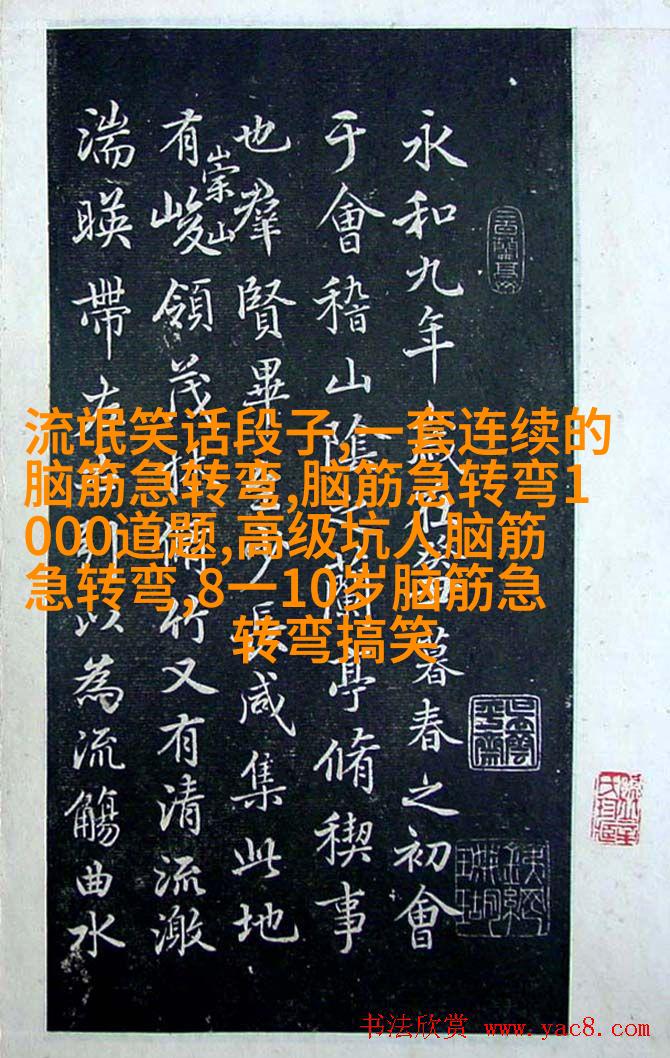 永和九年歲在癸暮春之初會
于會稽山陰之蘭亭脩稧事
也羣賢畢至少長咸集此地
有崇山峻領茂林脩竹又有清流激
湍暎帶左右引以為流觴曲水
流氓笑话段子,一套连续的
脑筋急转弯,脑筋急转弯1
000道题,高级坑人脑筋
急转弯,8一10岁脑筋急
转弯搞笑
书法欣赏 www.yac8.com